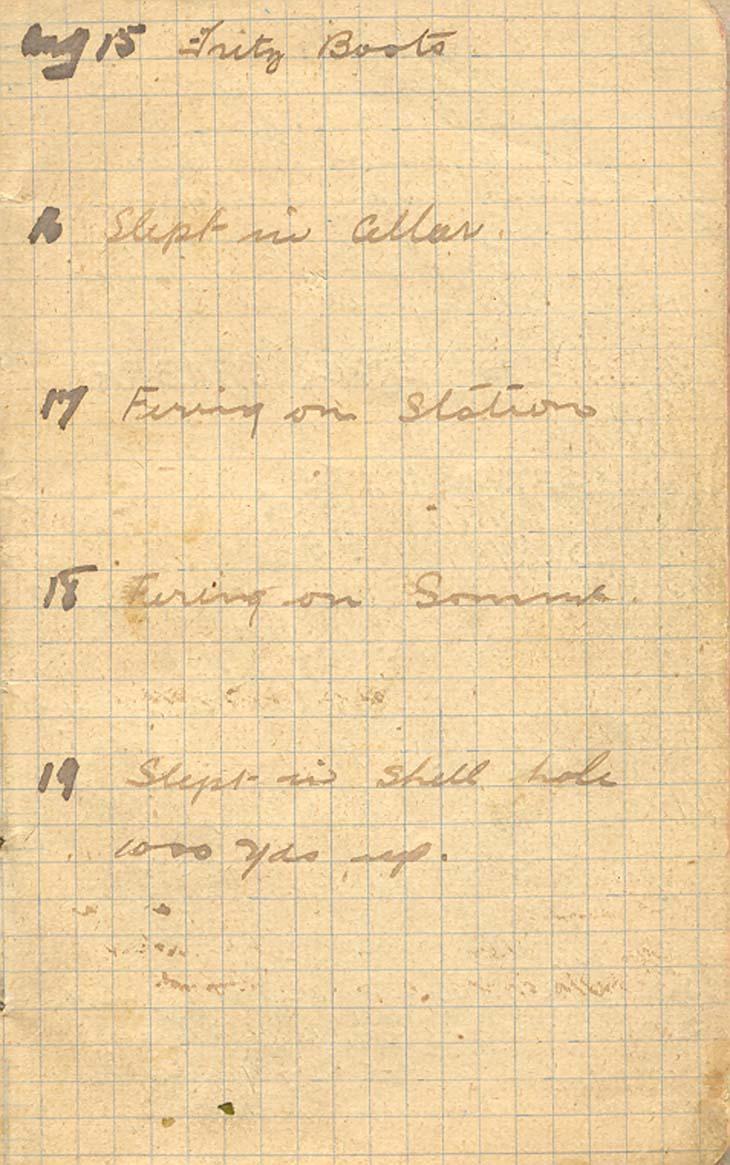 Aug 15 Fritz Boots
16 Slept in Cellar.
17 Firing on Station
18 Firing on Somme.
19 Slept in shell hole
1000 yds up.